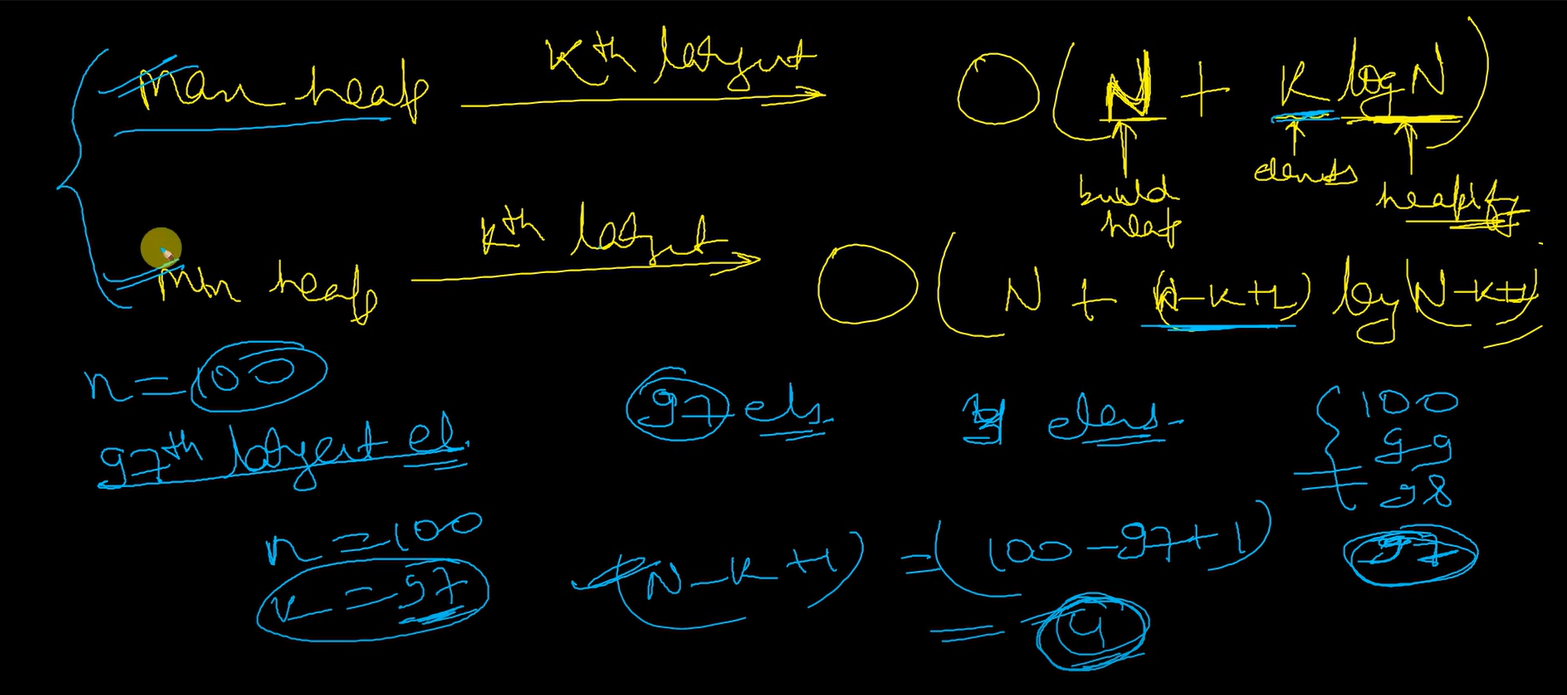 Max heap Kth largest O(N + K log N)
build heap elements heapify
Min heap Kth largest O(N + (N-K+1) log(N-K+1))
n = 100
97th largest el.
97 els.
4 elems.
100
99
98
97
n = 100
K = 97
(N-K+1) = (100-97+1)
= 4